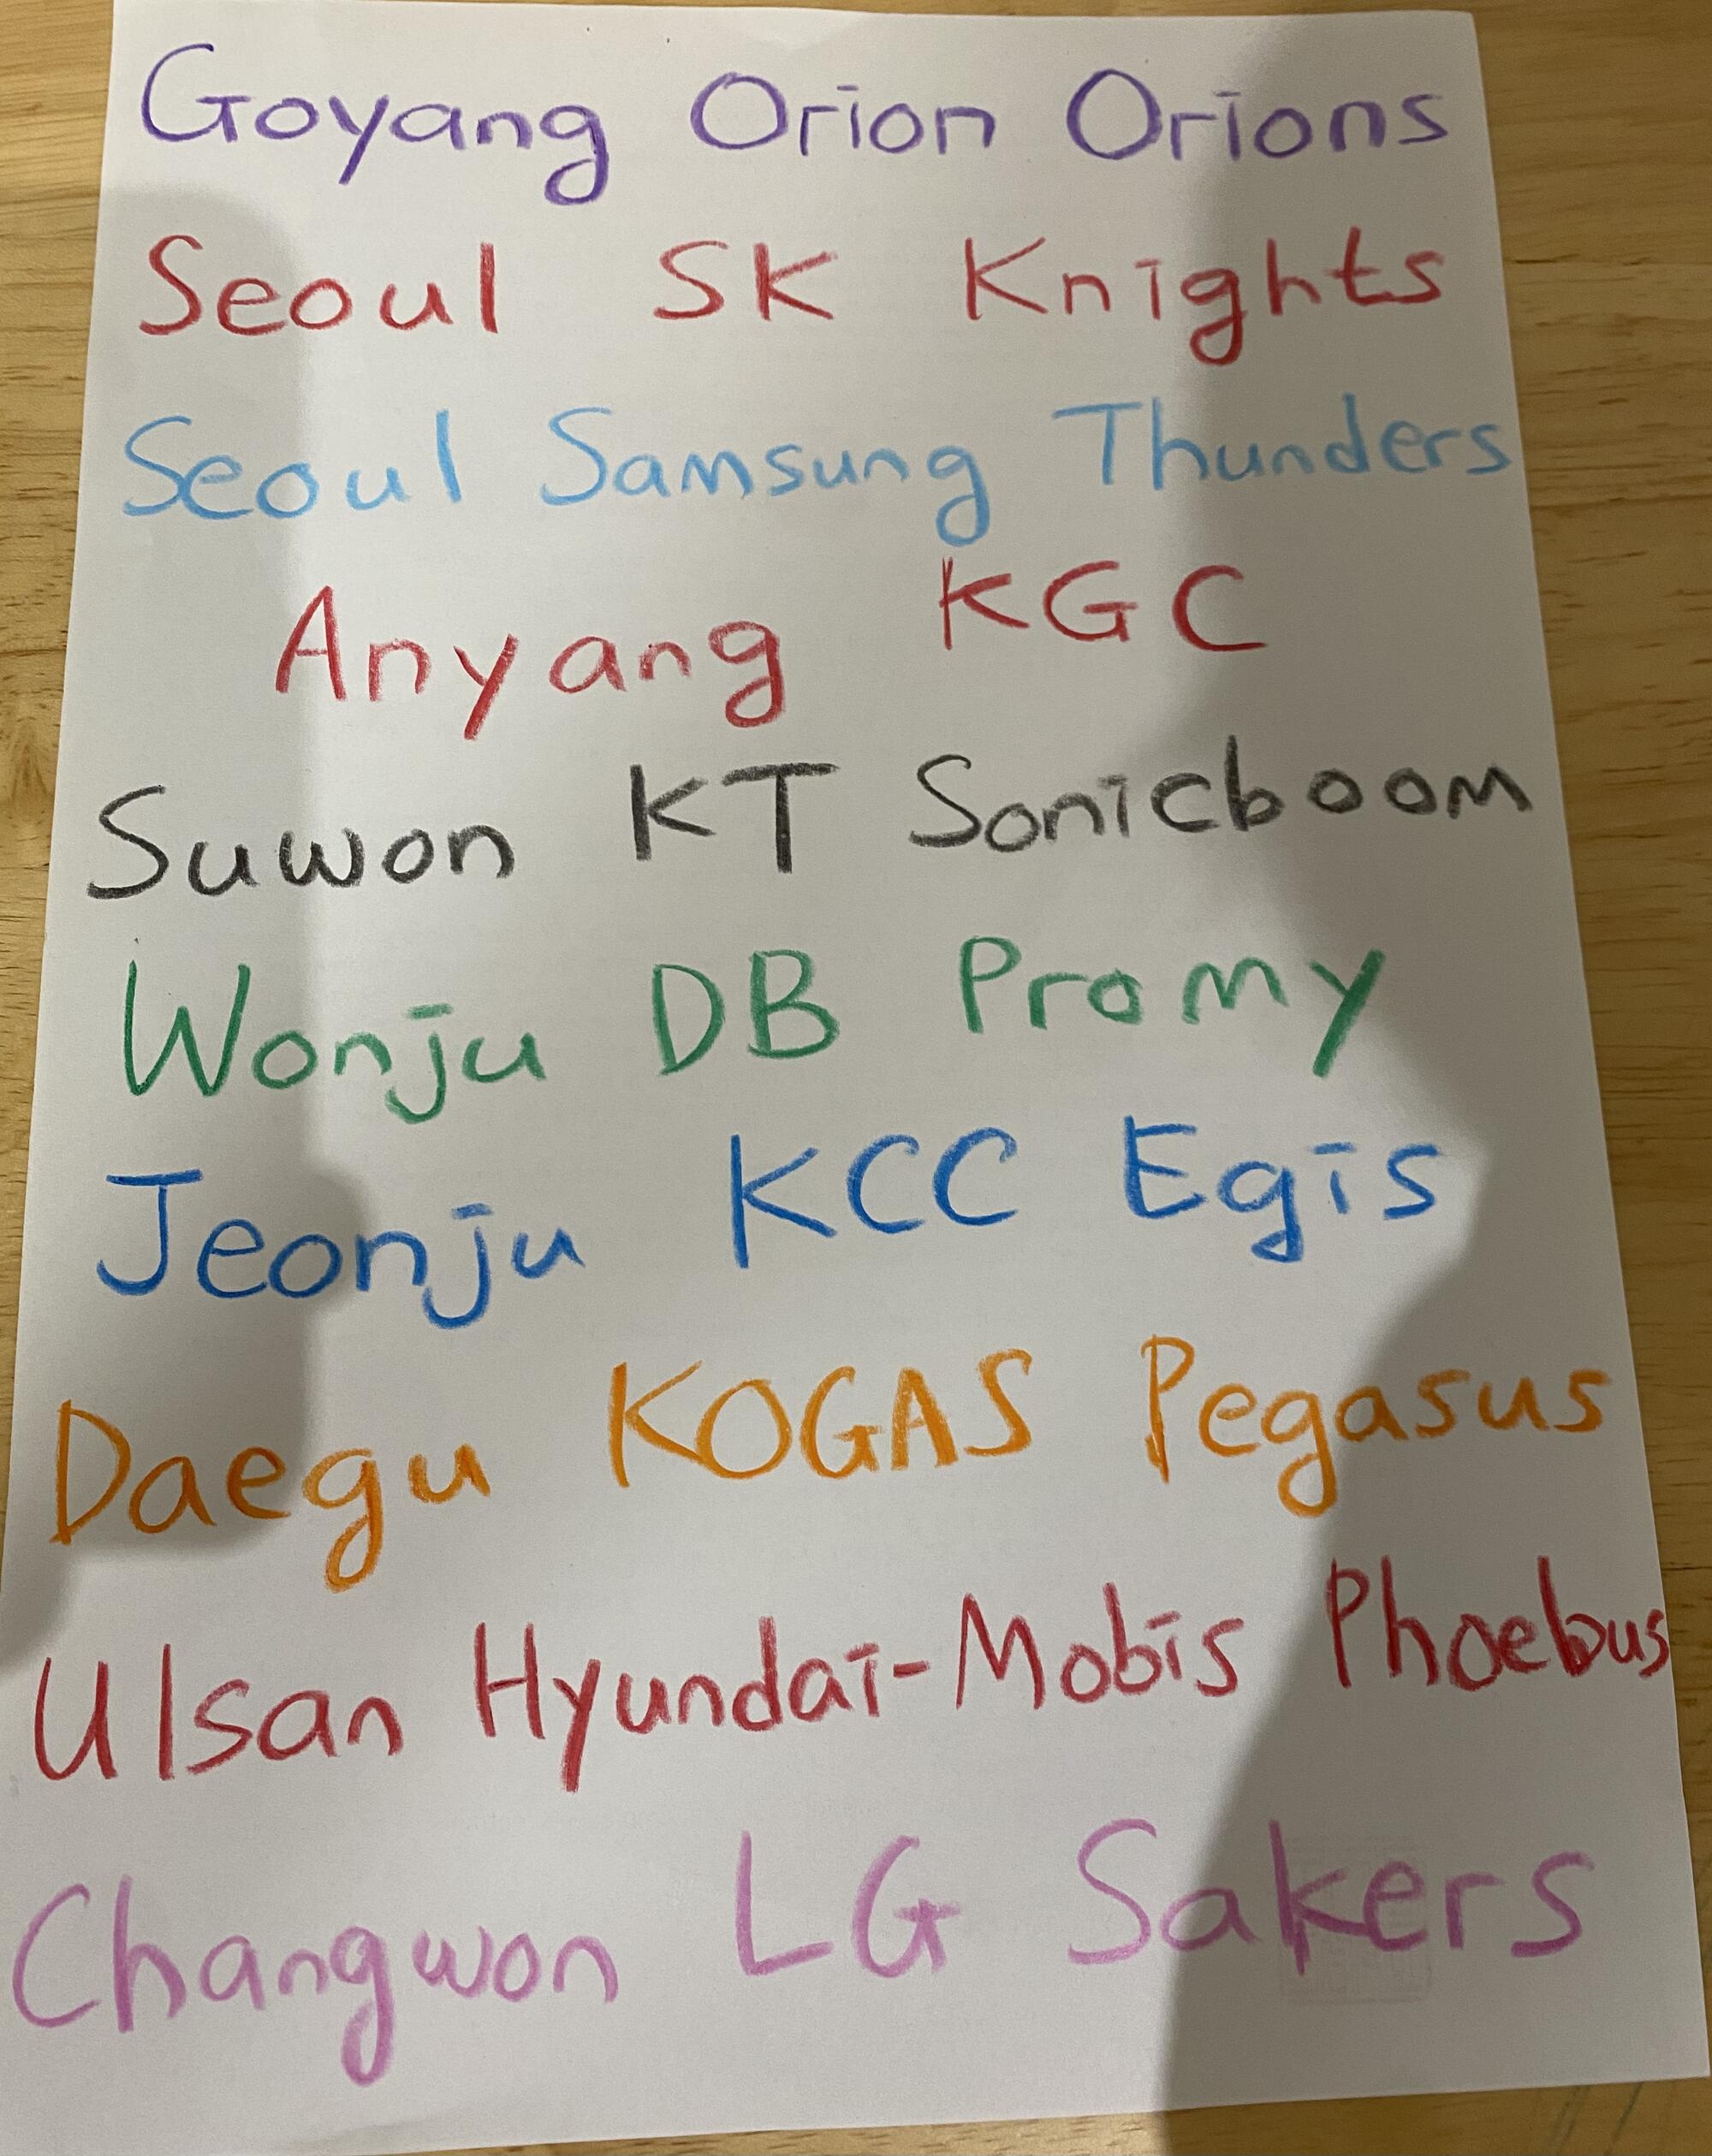 Goyang Orion Orions
Seoul SK Knights
Seoul Samsung Thunders
Anyang KGC
Suwon KT Sonicboom
Wonju DB Promy
Jeonju KCC Egis
Daegu KOGAS Pegasus
Ulsan Hyundai-Mobis Phoebus
Changwon LG Sakers